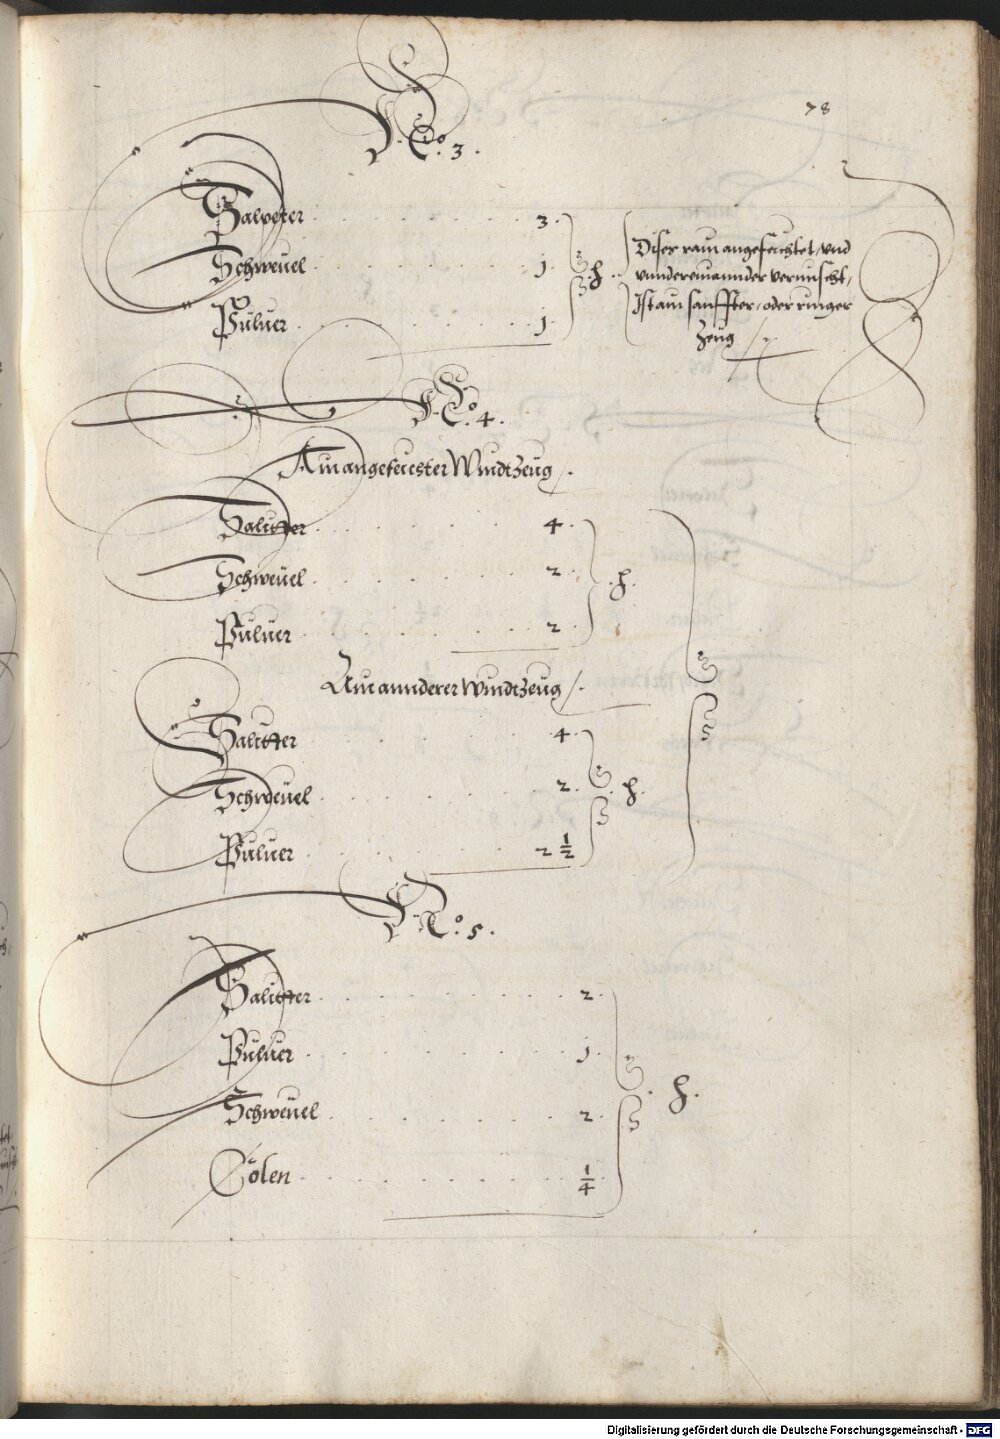 78
No. 3.
Salpeter . . . . . 3.
Schweuel . . . . . 1.
Puluer . . . . . 1.
℔
Diser rain angefeichtet, vnd
vnndereinannder vermischt,
Ist ain sanffter, oder ringer
Zeug
No. 4.
Ain angefeichter WindtZeug /.
Salitter . . . . . 4.
Schweuel . . . . . 2.
Puluer . . . . . 2.
℔.
Ain annderer WindtZeug /.
Salitter . . . . . 4.
Schweuel . . . . . 2.
Puluer . . . . . 2 1/2
℔.
No. 5.
Salitter . . . . . 2.
Puluer . . . . . 1.
Schweuel . . . . . 2.
Colen . . . . . 1/4
℔.
Digitalisierung gefördert durch die Deutsche Forschungsgemeinschaft - DFG